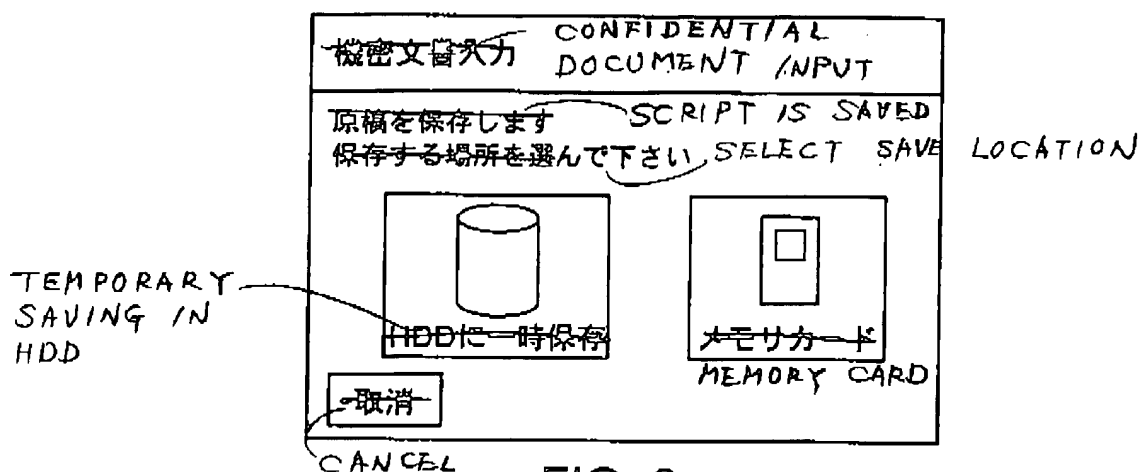 機密文書入力 CONFIDENTIAL
DOCUMENT INPUT
原稿を保存します SCRIPT IS SAVED
保存する場所を選んで下さい SELECT SAVE LOCATION
TEMPORARY
SAVING IN
HDD
HDDに一時保存
メモリカード
MEMORY CARD
取消
CANCEL